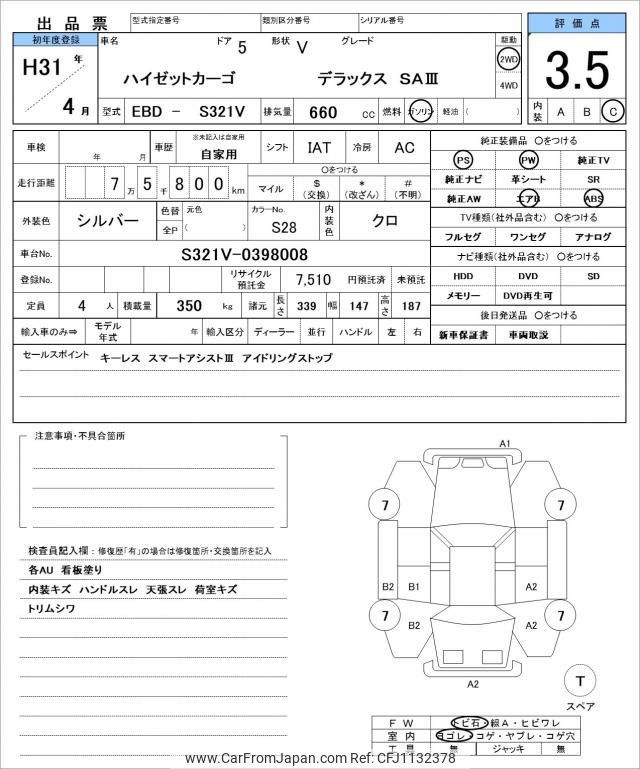 出品票
型式指定番号 類別区分番号 シリアル番号
評価点
3.5
内装 A B C
初年度登録
H31 年
4 月
車名 ドア 5 形状 V グレード
ハイゼットカーゴ デラックス SAⅢ
駆動
2WD
4WD
型式 EBD － S321V 排気量 660 CC 燃料 ガソリン 軽油 ( )
車検 年 月 車歴 ※未記入は自家用 自家用 シフト IAT 冷房 AC
走行距離 7 万 5 千 8 0 0 km
〇をつける
マイル $ (交換) * (改ざん) # (不明)
外装色 シルバー 色替 全P 元色 ( ) カラーNo. S28 内装色 クロ
車台No. S321V-0398008
登録No. リサイクル預託金 7,510 円預託済 未預託
定員 4 人 積載量 350 kg 諸元 長さ 339 幅 147 高さ 187
輸入車のみ⇒ モデル年式 年 輸入区分 ディーラー 並行 ハンドル 左 右
純正装備品 〇をつける
PS PW 純正TV
純正ナビ 革シート SR
純正AW エアB ABS
TV種類(社外品含む) 〇をつける
フルセグ ワンセグ アナログ
ナビ種類(社外品含む) 〇をつける
HDD DVD SD
メモリー DVD再生可
後日発送品 〇をつける
新車保証書 車両取説
セールスポイント キーレス スマートアシストⅢ アイドリングストップ
注意事項・不具合箇所
検査員記入欄：修復歴「有」の場合は修復箇所・交換箇所を記入
各AU 看板塗り
内装キズ ハンドルスレ 天張スレ 荷室キズ
トリムシワ
A1
7 7
B2 B1 A2
7 B2 A2 7
A2
T
スペア
FW トビ石・線A・ヒビワレ
室内 ヨゴレ・コゲ・ヤブレ・コゲ穴
工具 無 ジャッキ 無
www.CarFromJapan.com Ref: CFJ1132378